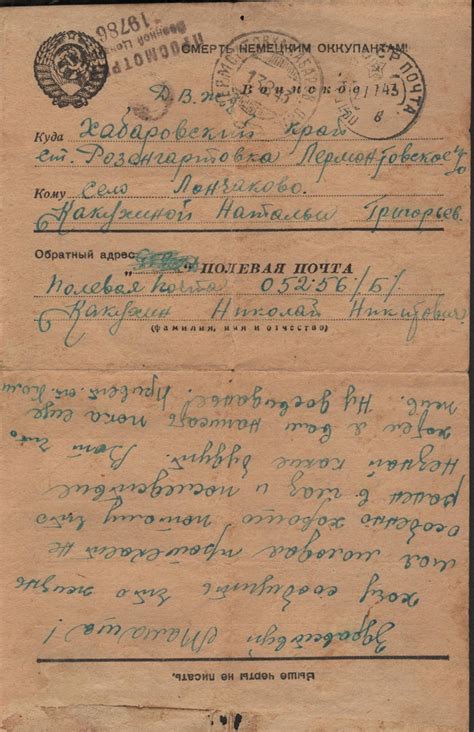 ПРОСМОТРЕНО
Военной Цензурой
19786
СМЕРТЬ НЕМЕЦКИМ ОККУПАНТАМ!
Д.В.ж Воинское
ПОЧТА
Куда Хабаровский край
ст. Розангартовка Лермонтовское
Кому село Лончаково.
Какухиной Натальи Григорьев.
Обратный адрес
" ПОЛЕВАЯ ПОЧТА
Полевая почта 05256/Б/
Какухин Николай Никитович
(фамилия, имя и отчество)
Выше черты не писать.
Здравствуй Мамаша!
хочу сообщить что жизнь
моя молодая протекает не
особено хорошо потому что
ранен в глаз и последствие
Незнай какие будут. Вот что
хотел я вам написать пока еще
жив. Ну досвиданье! Привет от Коли